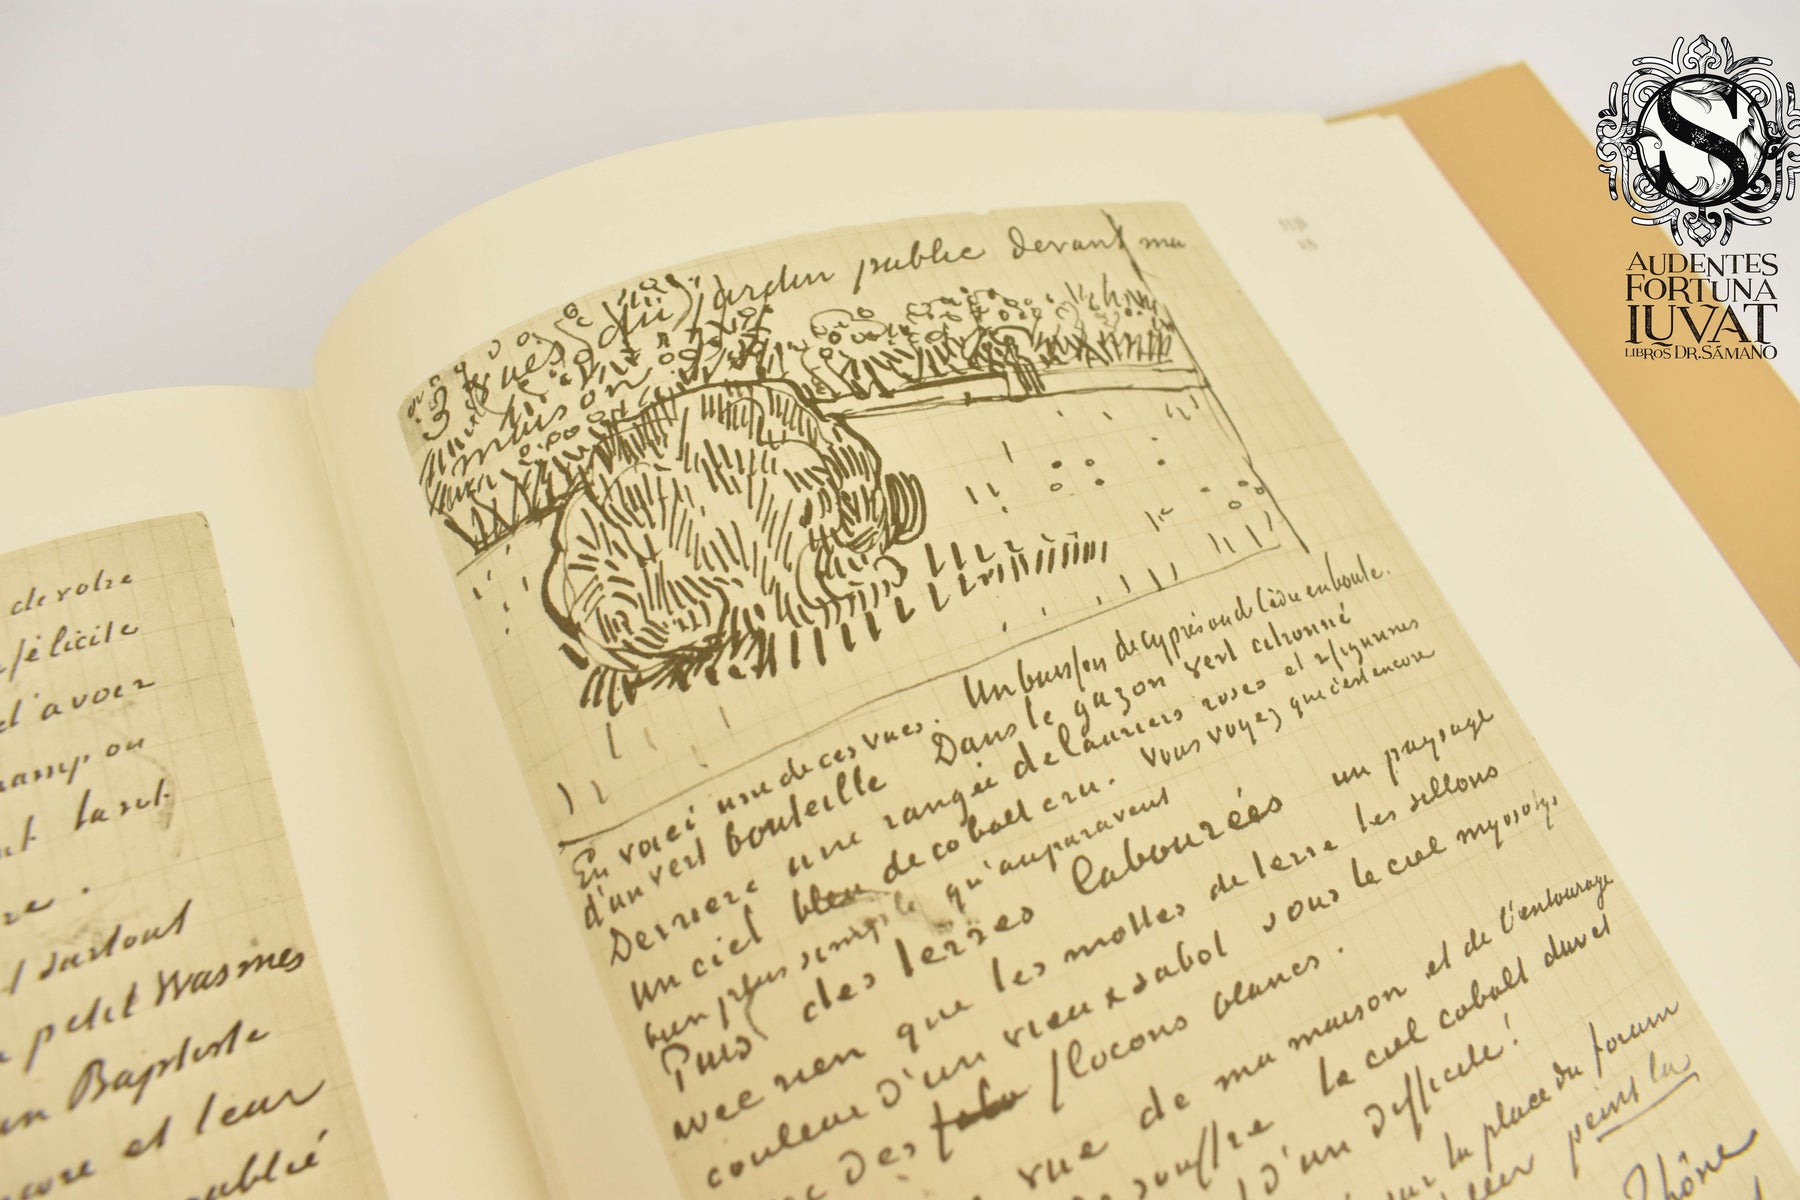 de votre
félicite
d'avoir
champ ou
tard.
re.
et surtout
petit Wasmes
Baptiste
et leur
oublié
jardin public devant ma
3 vues du
maison
En voici une de ces vues. Un buisson de cyprès ou de cèdre en boule.
d'un vert bouteille Dans le gazon vert citronné
Derriere une rangée de lauriers roses et
un ciel bleu de cobalt cru. Vous voyez que c'est encore
bien plus simple qu'auparavant
Puis des terres labourées un paysage
avec rien que les mottes de terre les sillons
couleur d'un vieux sabot sous le ciel myosotys
avec des flocons blancs.
vue de ma maison et de l'entourage
souffre le ciel cobalt dur et
d'un difficile!
sur la place du forum
peint la
Rhône
S
AUDENTES
FORTUNA
IUVAT
LIBROS DR. SÁMANO